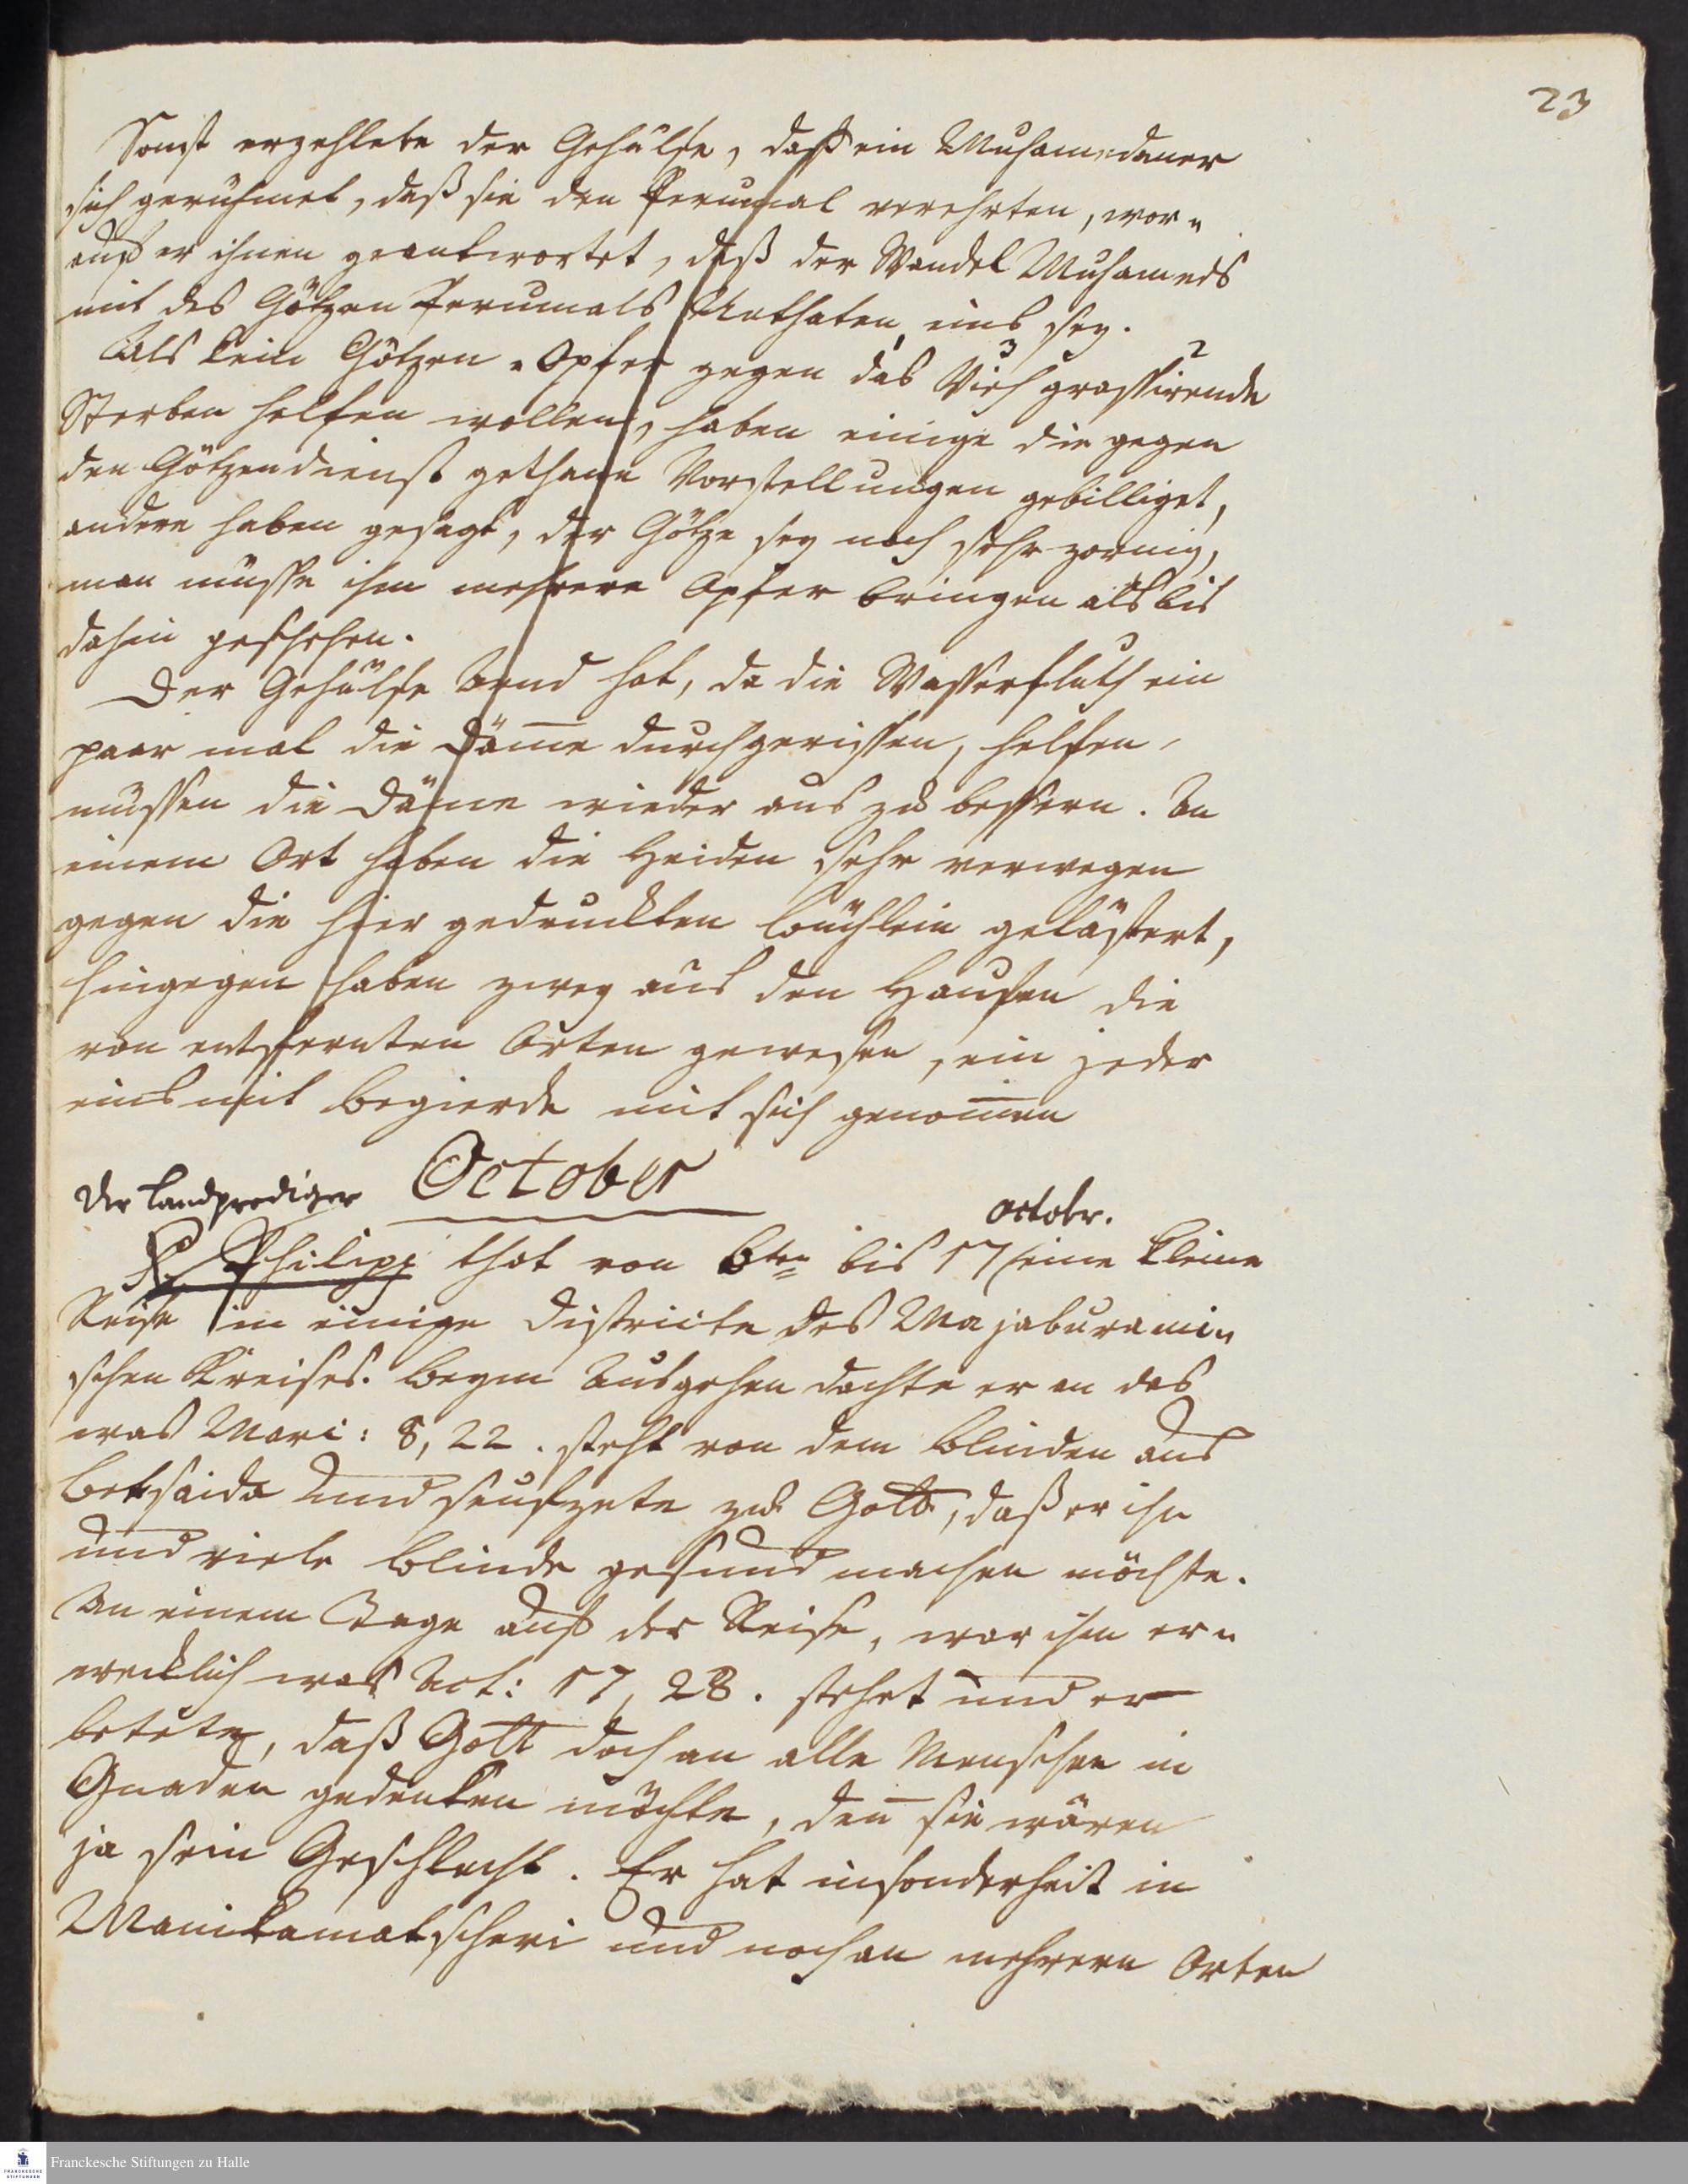 23
Sonst erzehlete der Gehülfe, daß ein Muhamedaner
sich gerühmet, daß sie den Perumal verehrten, wor-
auf er ihnen geantwortet, daß der Wandel Muhameds
mit des Götzen Perumals Unthaten eins sey.
Als kein Götzen-Opfer gegen das Vieh grassirende
Sterben helfen wollen, haben einige die gegen
den Götzendienst gethane Vorstellungen gebilliget,
andere haben gesagt, der Götze sey noch sehr zornig,
man müsse ihm mehrere Opfer bringen als bis
dahin geschehen.
Der Gehülfe hat, da die Wasserfluth ein
paar mal die Däm̄e durchgerissen, helfen
müssen die Däme wieder aus zu bessern. An
einem Ort haben die Heiden sehr verwegen
gegen die hier gedruckten Büchlein gelästert,
hingegen haben zwey aus den Haufen die
von entfernten Orten gewesen, ein jeder
eins mit Begierde mit sich genom̄en
October
Der Landprediger
octobr.
P. Philipp that von 6ten bis 17 eine kleine
Reise in einige Districte des Majaburami-
schen Kreises. Beym Ausgehen dachte er an das
was Marc: 8, 22. steht von dem Blinden aus
Betsaida und seufzete zu Gott, daß er ihn
und viele Blinde gesund machen möchte.
An einem Tage auf der Reise, war ihm er-
wecklich was Act: 17, 28. stehet und er
betete, daß Gott doch an alle Menschen in
Gnaden gedenken möchte, den̄ sie wären
ja sein Geschlecht. Er hat insonderheit in
Manikamatscheri und noch an mehrern Orten
Franckesche Stiftungen zu Halle